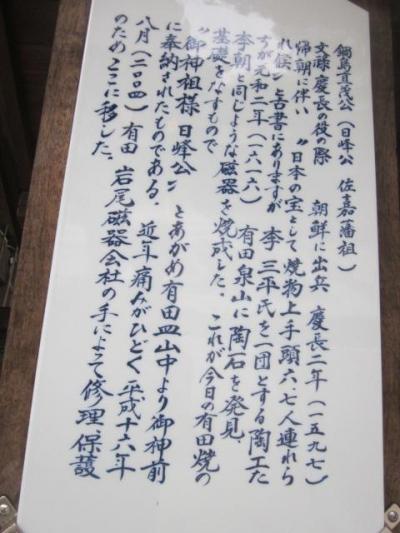 鍋島直茂公(日峰公 佐嘉藩祖)
文禄慶長の役の際 朝鮮に出兵 慶長二年(一五九七)
帰朝に伴い〝日本の宝として焼物上手頭六、七人連れら
れ候〟と古書にありますが 李 三平氏を一団とする陶工た
ちが元和二年(一六一六) 有田泉山に陶石を発見
李朝と同じような磁器を焼成した。これが今日の有田焼の
基礎をなすもので
〝御神祖様日峰公〟とあがめ有田皿山中より御神前
に奉納されたものである。 近年痛みがひどく平成十六年
八月(二〇〇四)有田 岩尾磁器会社の手によって修理、保護
のためここに移した。